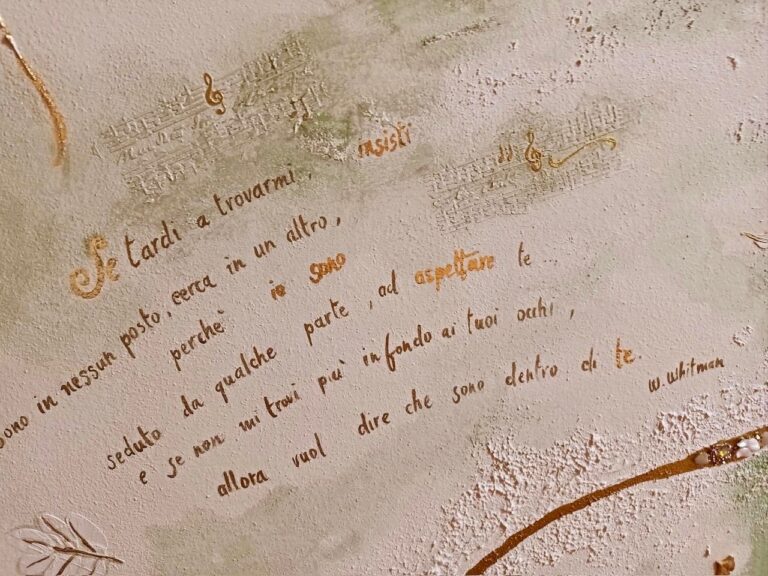 Se tardi a trovarmi, insisti
sono in nessun posto, cerca in un altro,
perchè io sono
seduto da qualche parte, ad aspettare te
e se non mi trovi più in fondo ai tuoi occhi,
allora vuol dire che sono dentro di te.
W. Whitman